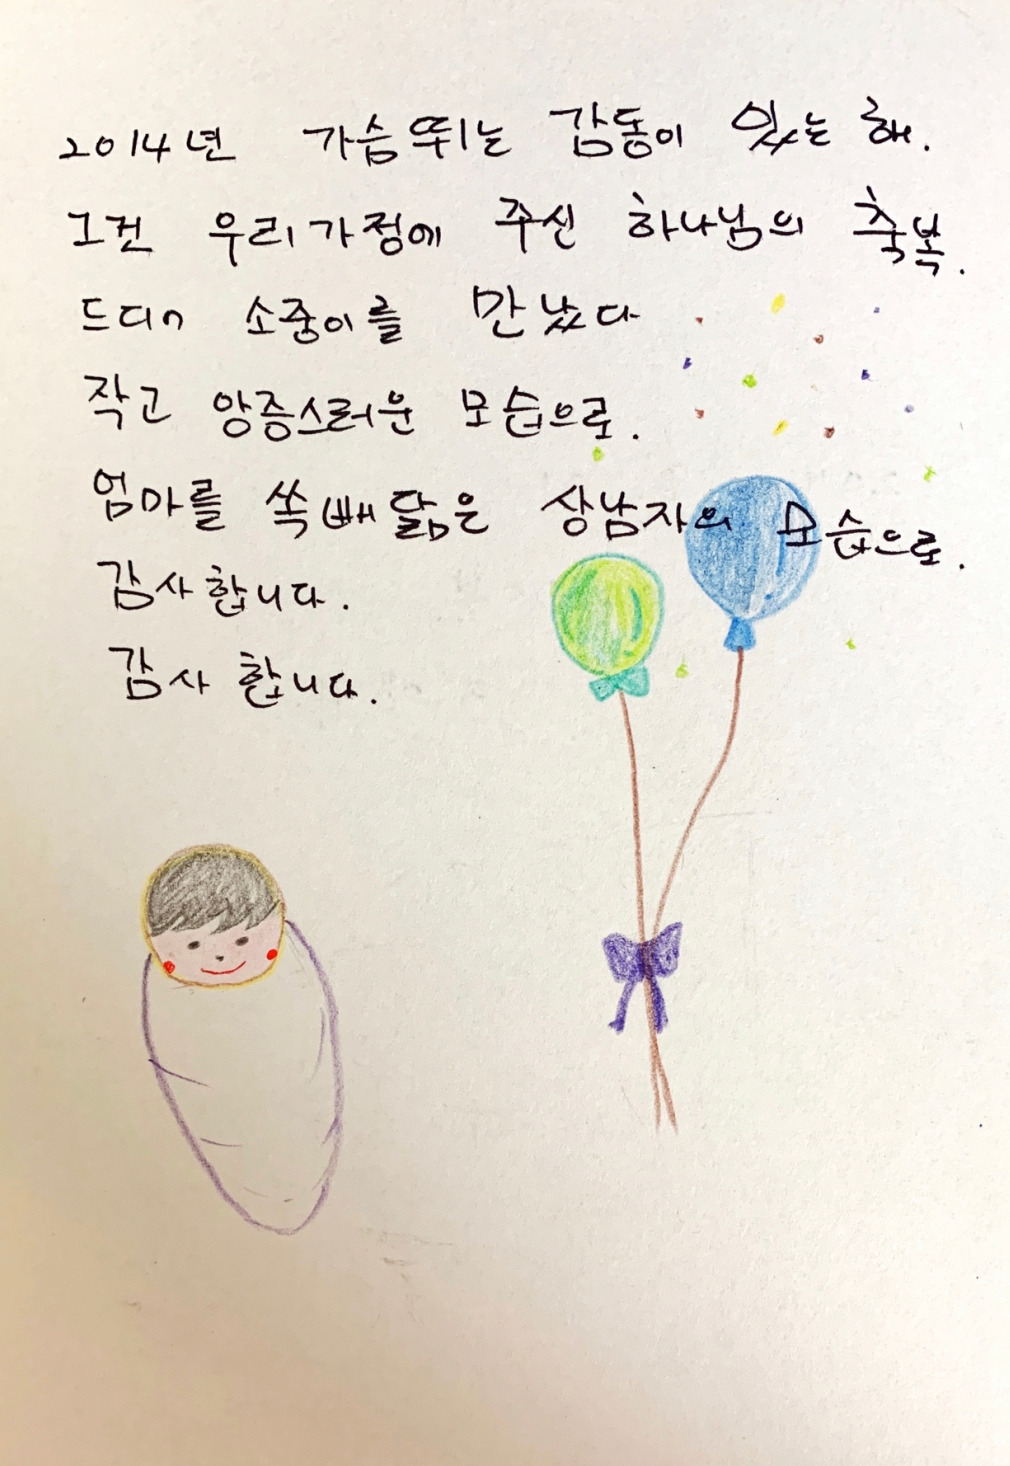 2014년 가슴뛰는 감동이 있는 해.
그건 우리가정에 주신 하나님의 축복.
드디어 소중이를 만났다
작고 앙증스러운 모습으로.
엄마를 쏙 빼닮은 상남자의 모습으로.
감사합니다.
감사합니다.